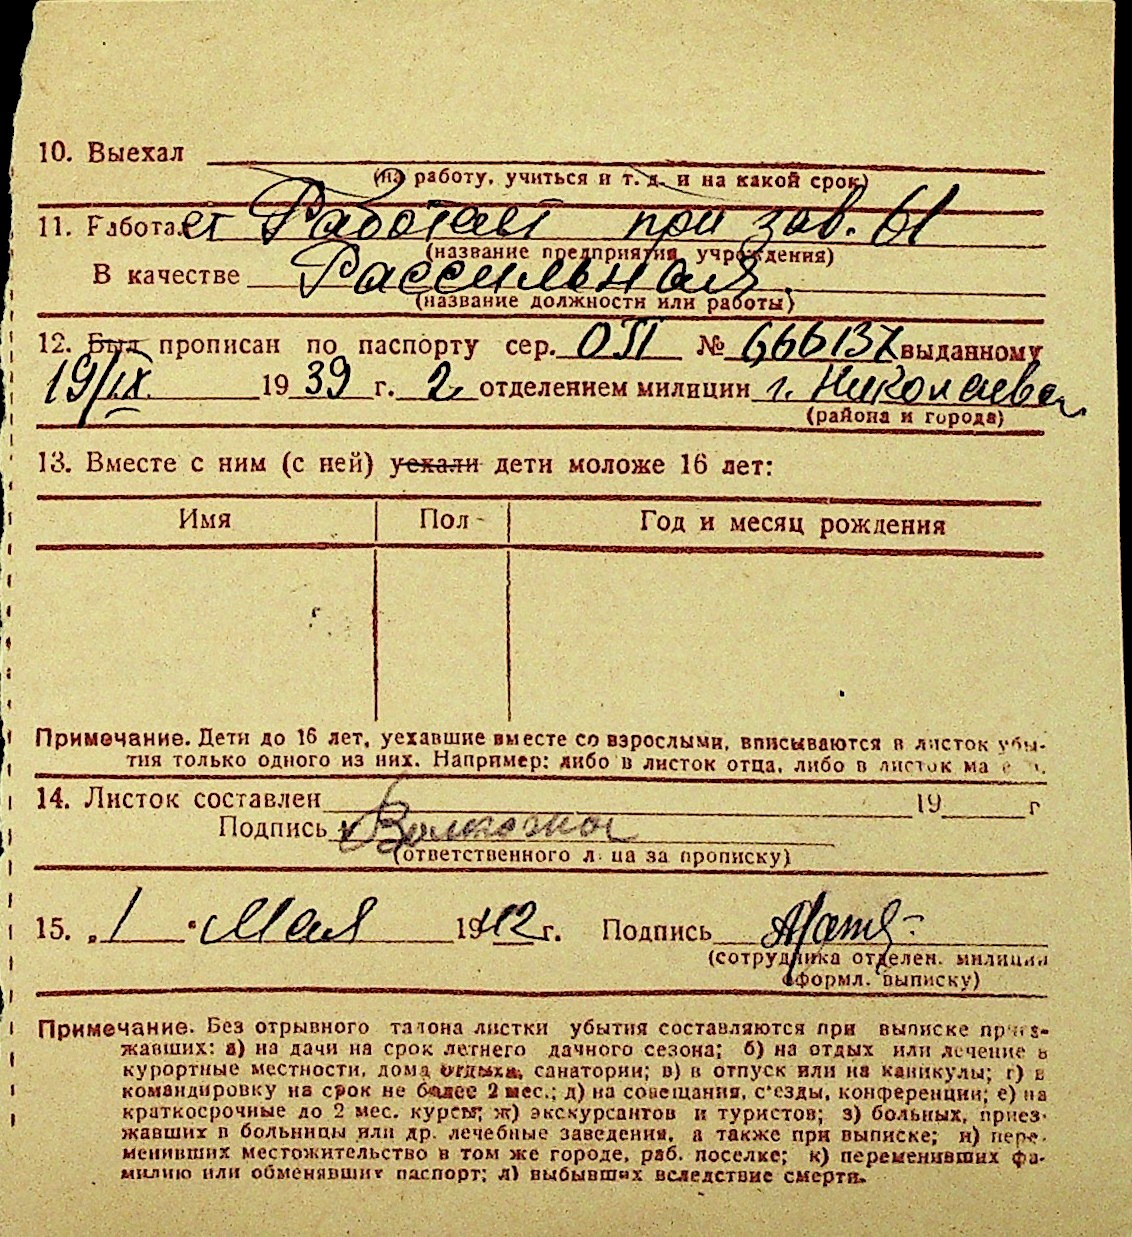 10. Выехал
(на работу, учиться и т. д. и на какой срок)
11. Работает Работает при зав. 61
(название предприятия, учреждения)
В качестве Рассильная
(название должности или работы)
12. Был прописан по паспорту сер. ОП № 666137 выданному
19/IX 1939 г. 2 отделением милиции г. Николаева
(района и города)
13. Вместе с ним (с ней) уехали дети моложе 16 лет:
Имя Пол Год и месяц рождения
Примечание. Дети до 16 лет, уехавшие вместе со взрослыми, вписываются в листок убы-
тия только одного из них. Например: либо в листок отца, либо в листок ма
14. Листок составлен 19 г
Подпись
(ответственного лица за прописку)
15. „1" Мая 1942 г. Подпись
(сотрудника отделен. милиции
оформл. выписку)
Примечание. Без отрывного талона листки убытия составляются при выписке приез-
жавших: а) на дачи на срок летнего дачного сезона; б) на отдых или лечение в
курортные местности, дома отдыха, санатории; в) в отпуск или на каникулы; г) в
командировку на срок не более 2 мес.; д) на совещания, съезды, конференции; е) на
краткосрочные до 2 мес. курсы; ж) экскурсантов и туристов; з) больных, приез-
жавших в больницы или др. лечебные заведения, а также при выписке; и) пере-
менивших местожительство в том же городе, раб. поселке; к) переменивших фа-
милию или обменявших паспорт; л) выбывших вследствие смерти.